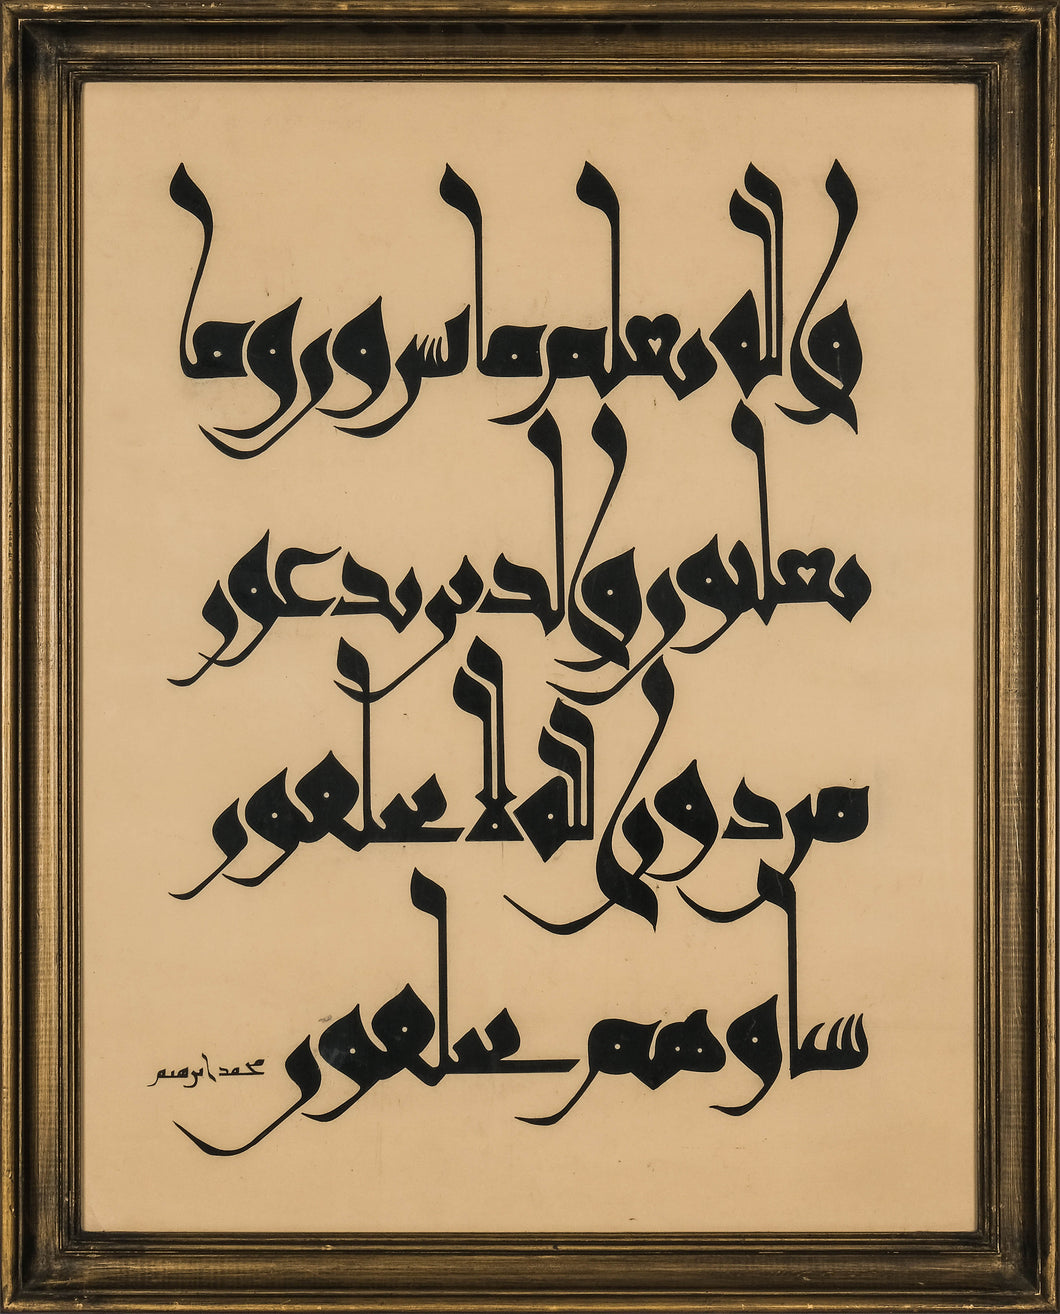 والله يعلم ما تسرون وما
تعلنون والذين يدعون
من دون الله لا يخلقون
شيا وهم يخلقون
محمد ابرهيم